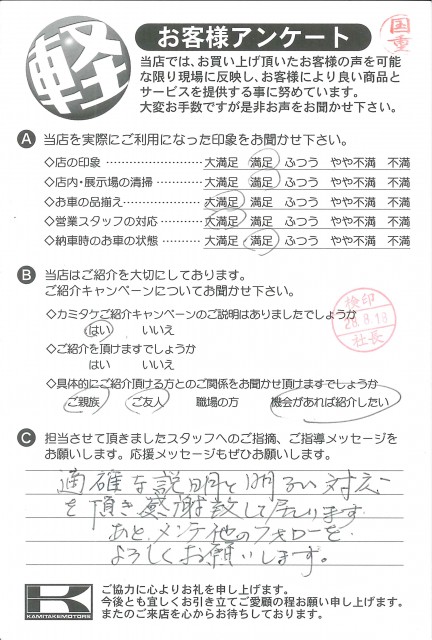 軽
お客様アンケート
国重
当店では、お買い上げ頂いたお客様の声を可能
な限り現場に反映し、お客様により良い商品と
サービスを提供する事に努めています。
大変お手数ですが是非お声をお聞かせ下さい。
A 当店を実際にご利用になった印象をお聞かせ下さい。
◇店の印象 ………………………… 大満足 満足 ふつう やや不満 不満
◇店内・展示場の清掃 …………… 大満足 満足 ふつう やや不満 不満
◇お車の品揃え …………………… 大満足 満足 ふつう やや不満 不満
◇営業スタッフの対応 …………… 大満足 満足 ふつう やや不満 不満
◇納車時のお車の状態 …………… 大満足 満足 ふつう やや不満 不満
B 当店はご紹介を大切にしております。
ご紹介キャンペーンについてお聞かせ下さい。
◇カミタケご紹介キャンペーンのご説明はありましたでしょうか
はい いいえ
検印
28.8.18
社長
◇ご紹介を頂けますでしょうか
はい いいえ
◇具体的にご紹介頂ける方とのご関係をお聞かせ頂けますでしょうか
ご親族 ご友人 職場の方 機会があれば紹介したい
C 担当させて頂きましたスタッフへのご指摘、ご指導メッセージを
お願いします。応援メッセージもぜひお願いします。
適確な説明と明るい対応
を頂き感謝致して居ります
あと、メンテ他のフォローを
よろしくお願いします。
K
KAMITAKEMOTORS
ご協力に心よりお礼を申し上げます。
今後とも宜しくお引き立てご愛顧の程お願い申し上げます。
またのご来店を心からお待ちしております。